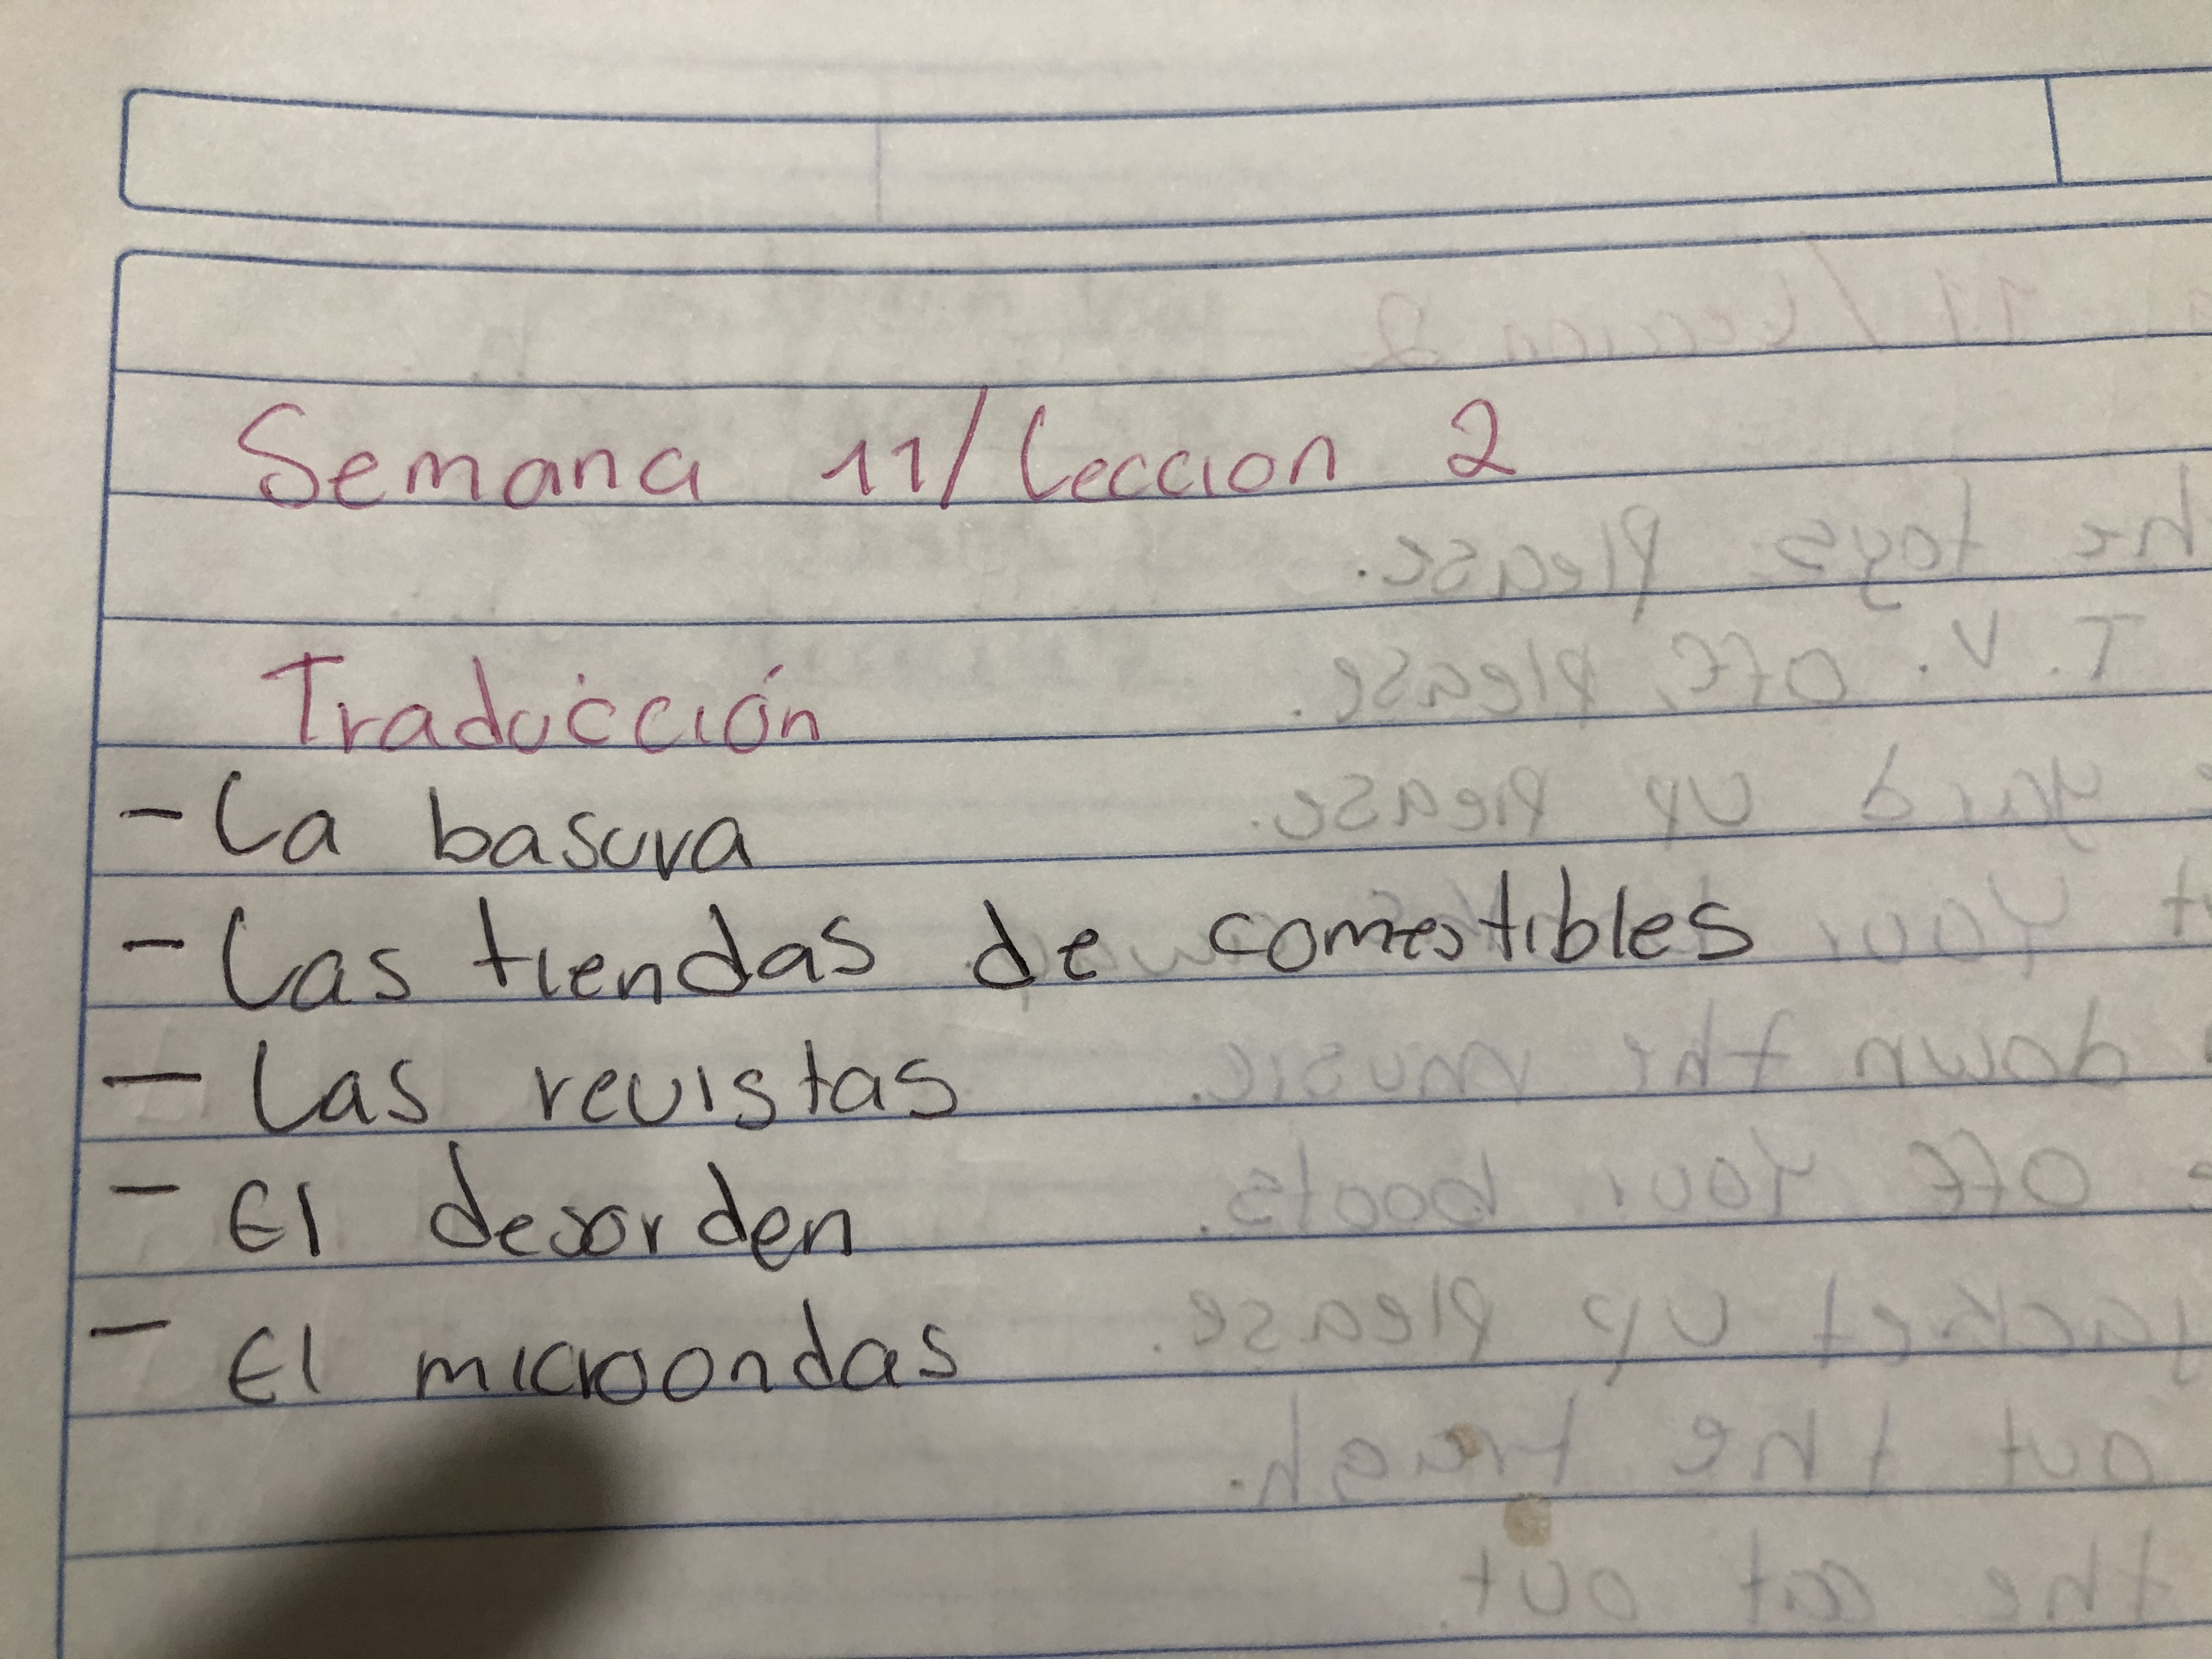 Semana 11/Leccion 2
Traducción
- La basura
- Las tiendas de comestibles
- Las revistas
- El desorden
- El microondas